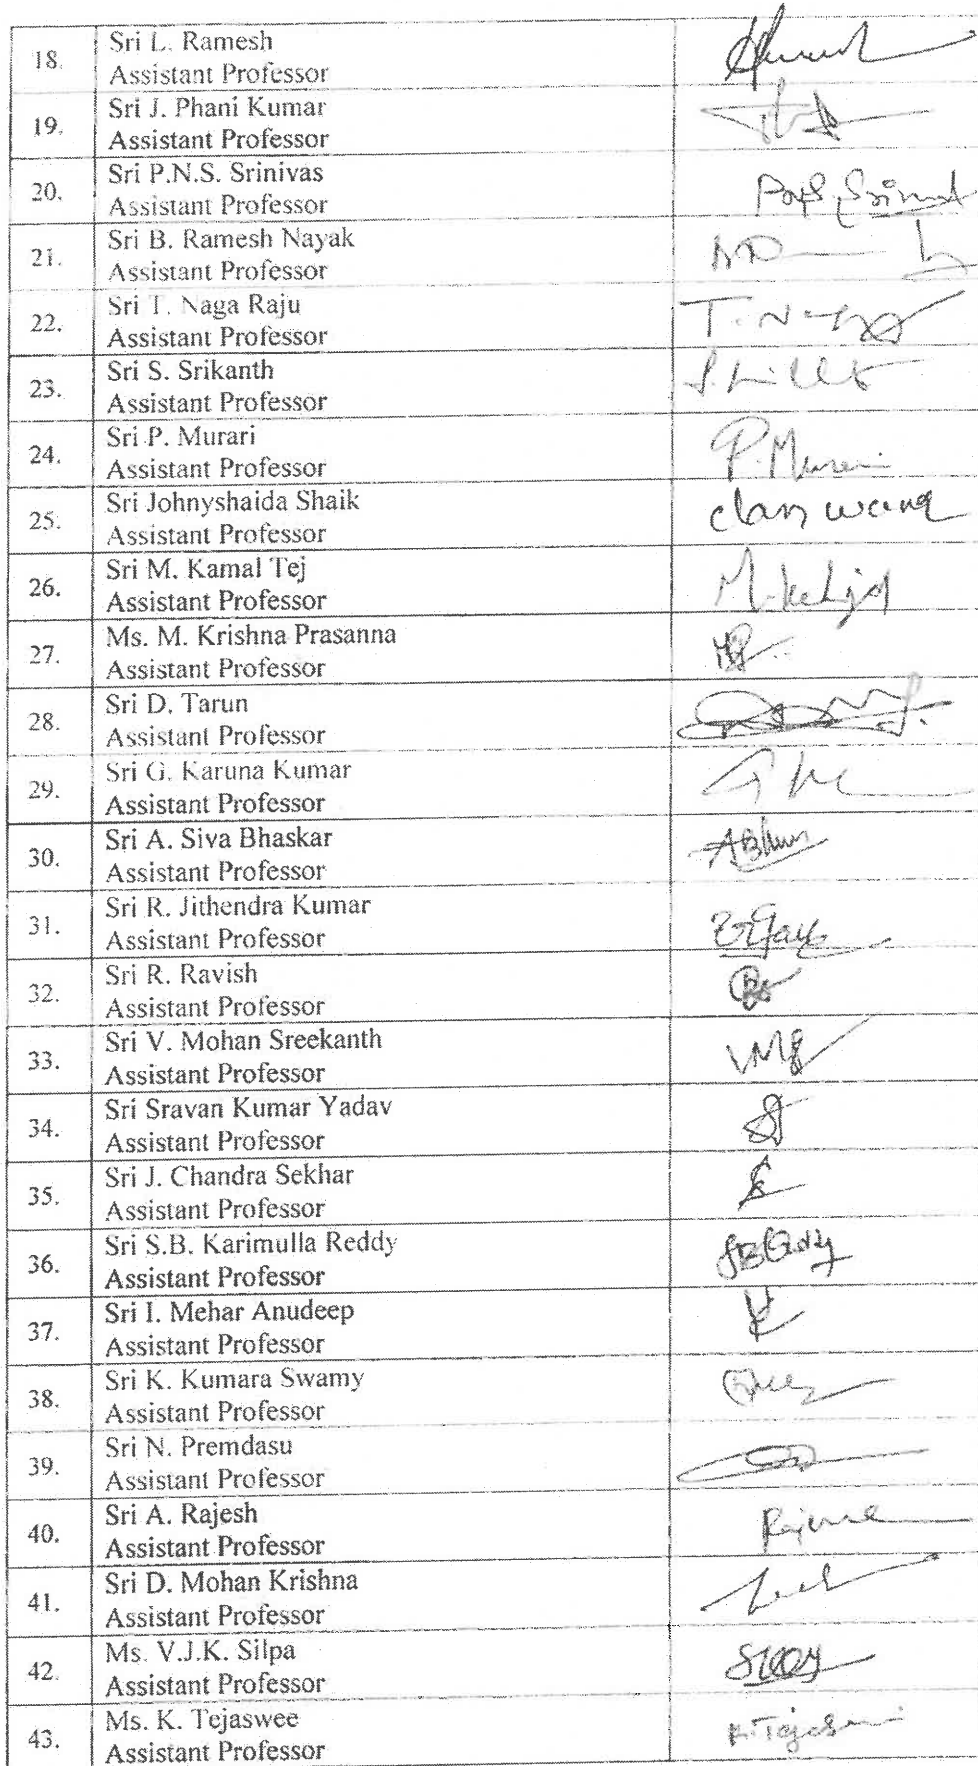 18. Sri L. Ramesh
Assistant Professor
19. Sri J. Phani Kumar
Assistant Professor
20. Sri P.N.S. Srinivas
Assistant Professor
21. Sri B. Ramesh Nayak
Assistant Professor
22. Sri T. Naga Raju
Assistant Professor
23. Sri S. Srikanth
Assistant Professor
24. Sri P. Murari
Assistant Professor
25. Sri Johnyshaida Shaik
Assistant Professor
class work
26. Sri M. Kamal Tej
Assistant Professor
27. Ms. M. Krishna Prasanna
Assistant Professor
28. Sri D. Tarun
Assistant Professor
29. Sri G. Karuna Kumar
Assistant Professor
30. Sri A. Siva Bhaskar
Assistant Professor
31. Sri R. Jithendra Kumar
Assistant Professor
32. Sri R. Ravish
Assistant Professor
33. Sri V. Mohan Sreekanth
Assistant Professor
34. Sri Sravan Kumar Yadav
Assistant Professor
35. Sri J. Chandra Sekhar
Assistant Professor
36. Sri S.B. Karimulla Reddy
Assistant Professor
37. Sri I. Mehar Anudeep
Assistant Professor
38. Sri K. Kumara Swamy
Assistant Professor
39. Sri N. Premdasu
Assistant Professor
40. Sri A. Rajesh
Assistant Professor
41. Sri D. Mohan Krishna
Assistant Professor
42. Ms. V.J.K. Silpa
Assistant Professor
43. Ms. K. Tejaswee
Assistant Professor